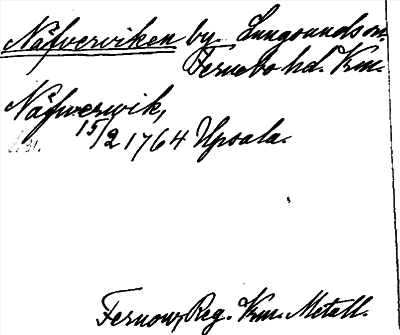 Näfverviken by. Lungsunds sn.
Fernebo hd. Krm.
Näfwerwik,
15/2 1764 Upsala.
Fernow, Reg. Krm. Metall.